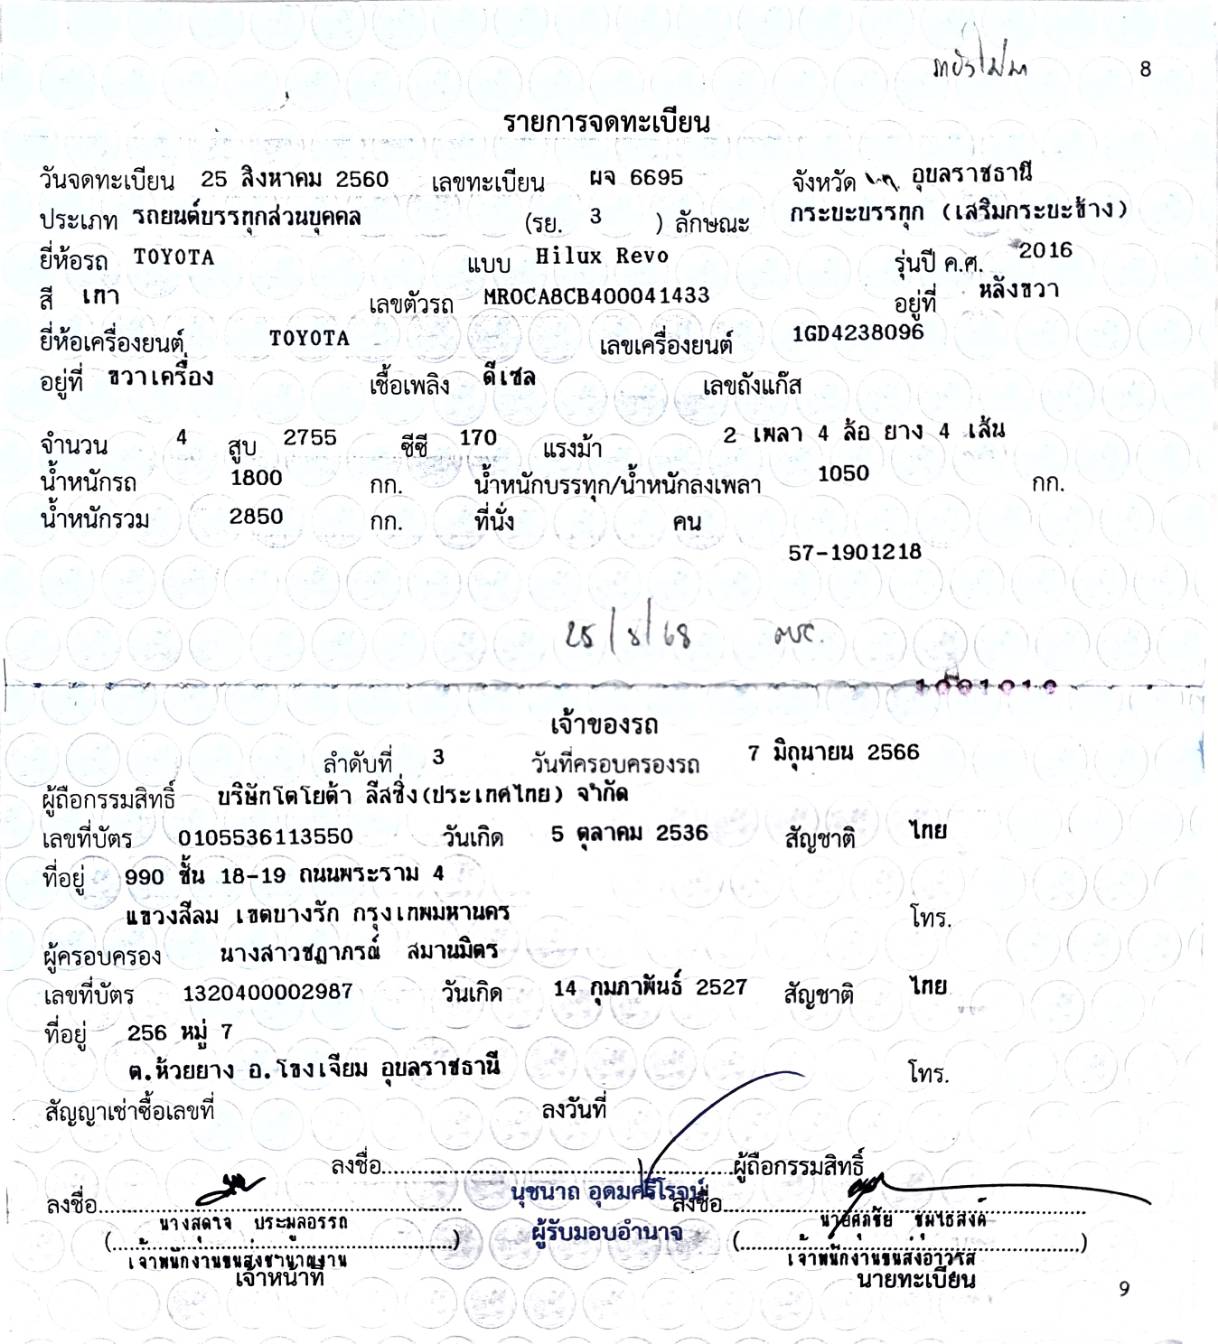 8
รายการจดทะเบียน
วันจดทะเบียน 25 สิงหาคม 2560 เลขทะเบียน ผจ 6695 จังหวัด อุบลราชธานี
ประเภท รถยนต์บรรทุกส่วนบุคคล (รย. 3 ) ลักษณะ กระบะบรรทุก (เสริมกระบะข้าง)
ยี่ห้อรถ TOYOTA แบบ Hilux Revo รุ่นปี ค.ศ. 2016
สี เทา เลขตัวรถ MR0CA8CB400041433 อยู่ที่ หลังขวา
ยี่ห้อเครื่องยนต์ TOYOTA เลขเครื่องยนต์ 1GD4238096
อยู่ที่ ขวาเครื่อง เชื้อเพลิง ดีเซล เลขถังแก๊ส
จำนวน 4 สูบ 2755 ซีซี 170 แรงม้า 2 เพลา 4 ล้อ ยาง 4 เส้น
น้ำหนักรถ 1800 กก. น้ำหนักบรรทุก/น้ำหนักลงเพลา 1050 กก.
น้ำหนักรวม 2850 กก. ที่นั่ง คน
57-1901218
25/8/68
เจ้าของรถ
ลำดับที่ 3 วันที่ครอบครองรถ 7 มิถุนายน 2566
ผู้ถือกรรมสิทธิ์ บริษัทโตโยต้า ลีสซิ่ง(ประเทศไทย) จำกัด
เลขที่บัตร 0105536113550 วันเกิด 5 ตุลาคม 2536 สัญชาติ ไทย
ที่อยู่ 990 ชั้น 18-19 ถนนพระราม 4
แขวงสีลม เขตบางรัก กรุงเทพมหานคร โทร.
ผู้ครอบครอง นางสาวชฎาภรณ์ สมานมิตร
เลขที่บัตร 1320400002987 วันเกิด 14 กุมภาพันธ์ 2527 สัญชาติ ไทย
ที่อยู่ 256 หมู่ 7
ต.ห้วยยาง อ.โขงเจียม อุบลราชธานี โทร.
สัญญาเช่าซื้อเลขที่ ลงวันที่
ลงชื่อ ผู้ถือกรรมสิทธิ์
ลงชื่อ นุชนาถ อุดมศรีโรจน์ ลงชื่อ
นางสดใจ ประมูลอรรถ ผู้รับมอบอำนาจ
เจ้าพนักงานขนส่งชำนาญงาน เจ้าพนักงานขนส่งอาวุโส
เจ้าหน้าที่ นายทะเบียน
9